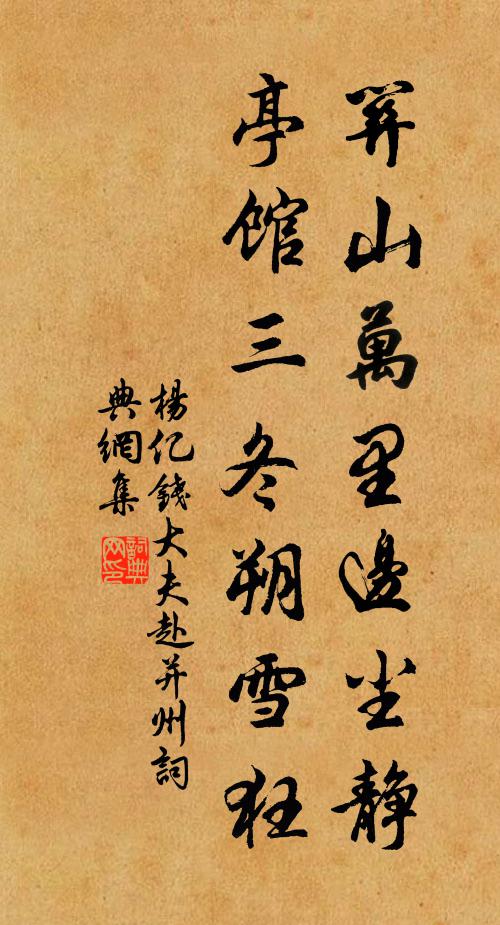 關山萬里邊尘静
亭館三冬朔雪狂
楊亿錢大夫赴并州詞
典網集
詞典
网印